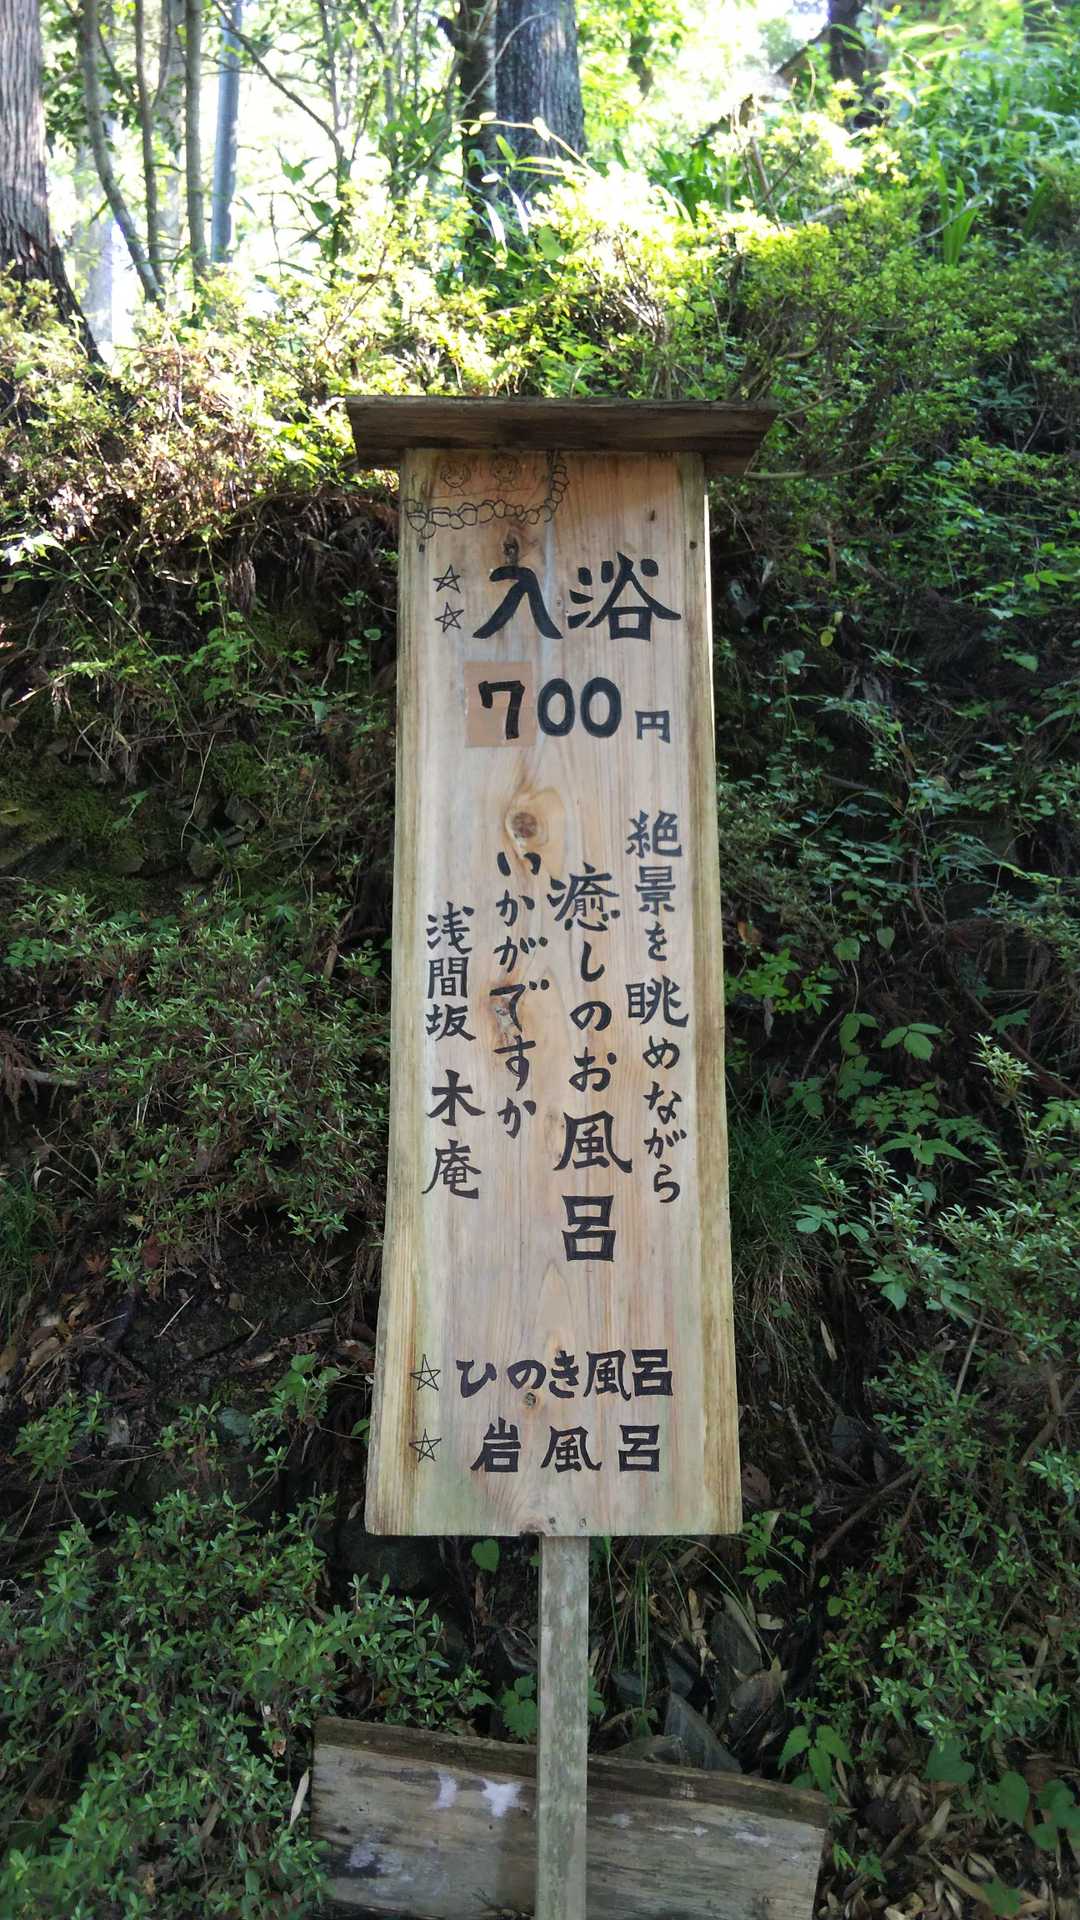 ☆ 入浴
☆ 700円
絶景を眺めながら
癒しのお風呂
いかがですか
浅間坂 木庵
☆ ひのき風呂
☆ 岩風呂